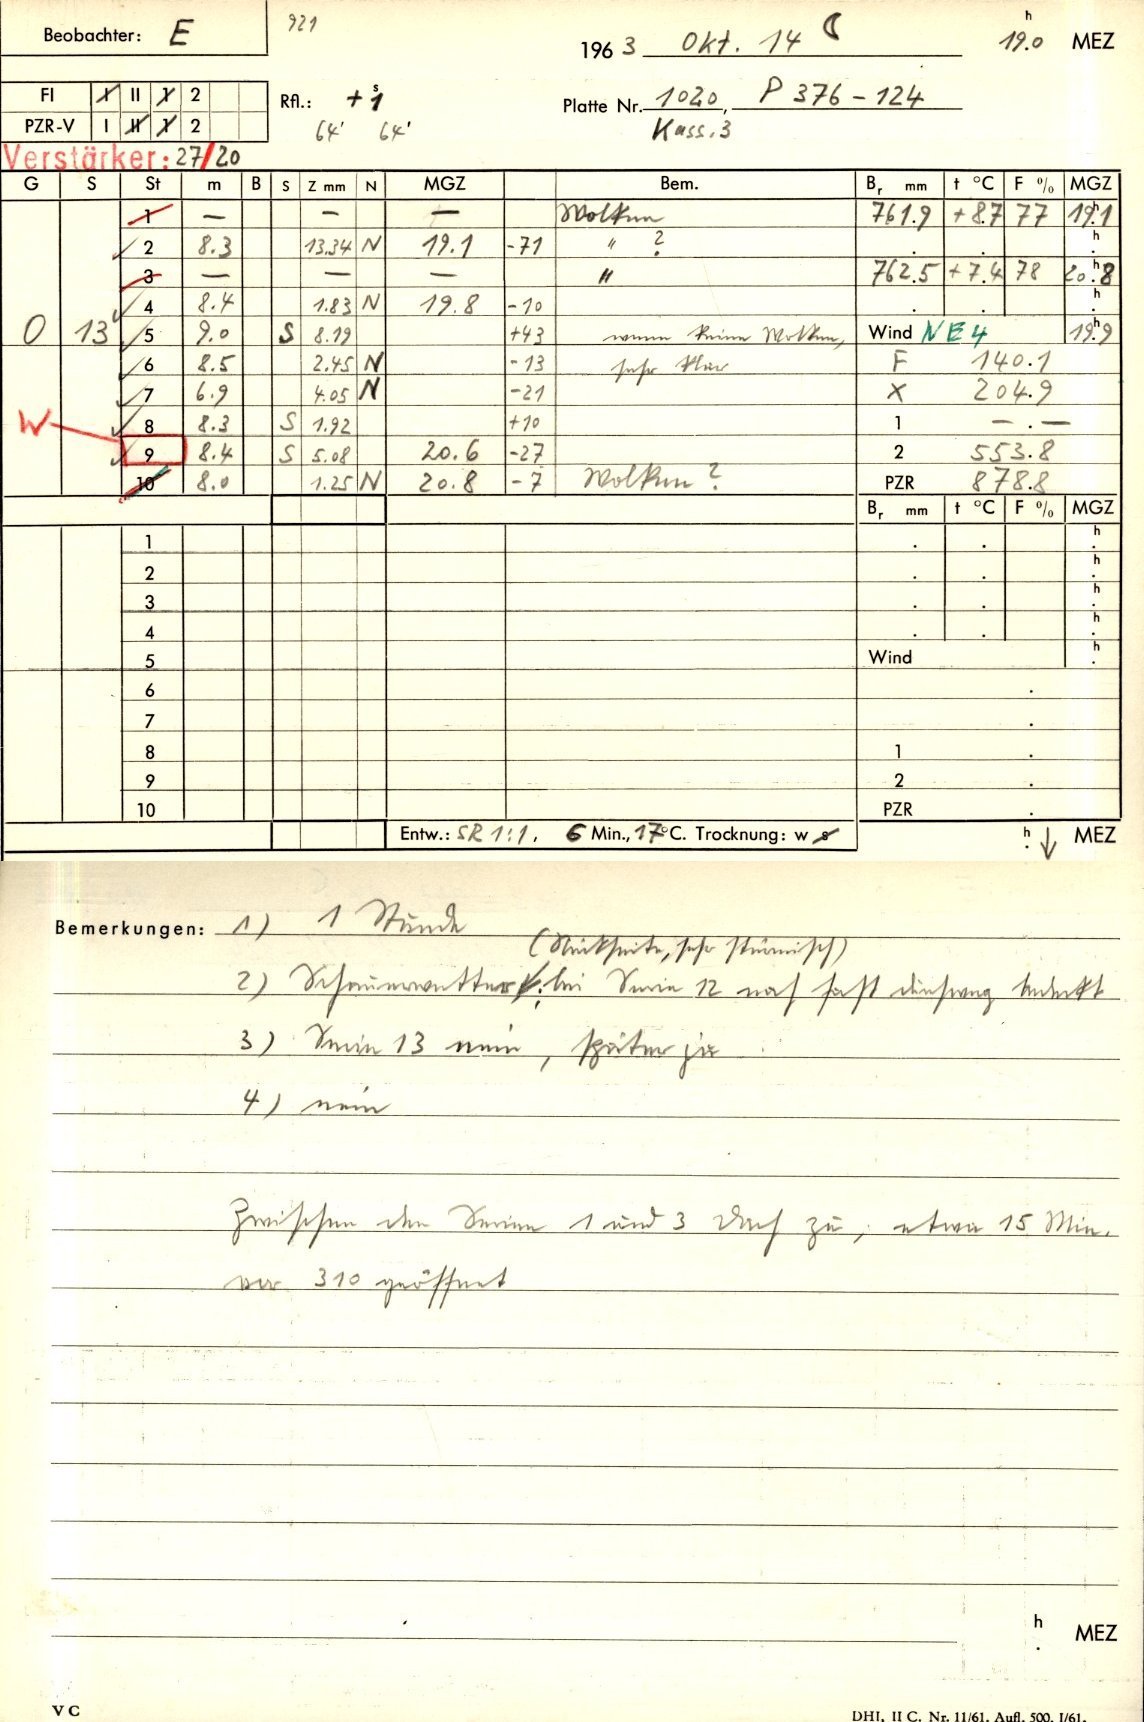 Beobachter: E
921
196 3 Okt. 14 ☾
h
19.0 MEZ
FI I II 1 2
PZR-V I II 1 2
Rfl.: + 1 s
64' 64'
Platte Nr. 1020, P 376 - 124
Kass. 3
Verstärker: 27/20
G S St m B S Z mm N MGZ Bem. Br mm t °C F % MGZ
1 — — — Wolken 761.9 +8.7 77 19.1 h
2 8.3 13.34 N 19.1 -71 " ? . . h .
3 — — — " 762.5 +7.4 78 20.8 h
4 8.4 1.83 N 19.8 -10 . . h .
0 13 5 9.0 S 8.19 +43 wenn keine Wolken, Wind NE4 19.9 h
6 8.5 2.45 N -13 sehr klar F 140.1
7 6.9 4.05 N -21 X 204.9
W 8 8.3 S 1.92 +10 1 — . —
9 8.4 S 5.08 20.6 -27 2 553.8
10 8.0 1.25 N 20.8 -7 Wolken ? PZR 878.8
Br mm t °C F % MGZ
1 . . h .
2 . . h .
3 . . h .
4 . . h .
5 Wind h .
6 .
7 .
8 1 .
9 2 .
10 PZR .
Entw.: SR 1:1, 6 Min., 17 °C. Trocknung: w s h . ↓ MEZ
Bemerkungen: 1) 1 Stunde
(Rückseite, sehr stürmisch)
2) Schauerwetter, bei Serie 12 noch fast durchweg bedeckt
3) Serie 13 nein, später ja
4) nein
Zwischen den Serien 1 und 3 Dach zu, etwa 15 Min.
vor 310 geöffnet
h
. MEZ
V C
DHI, II C. Nr. 11/61. Aufl. 500. I/61.